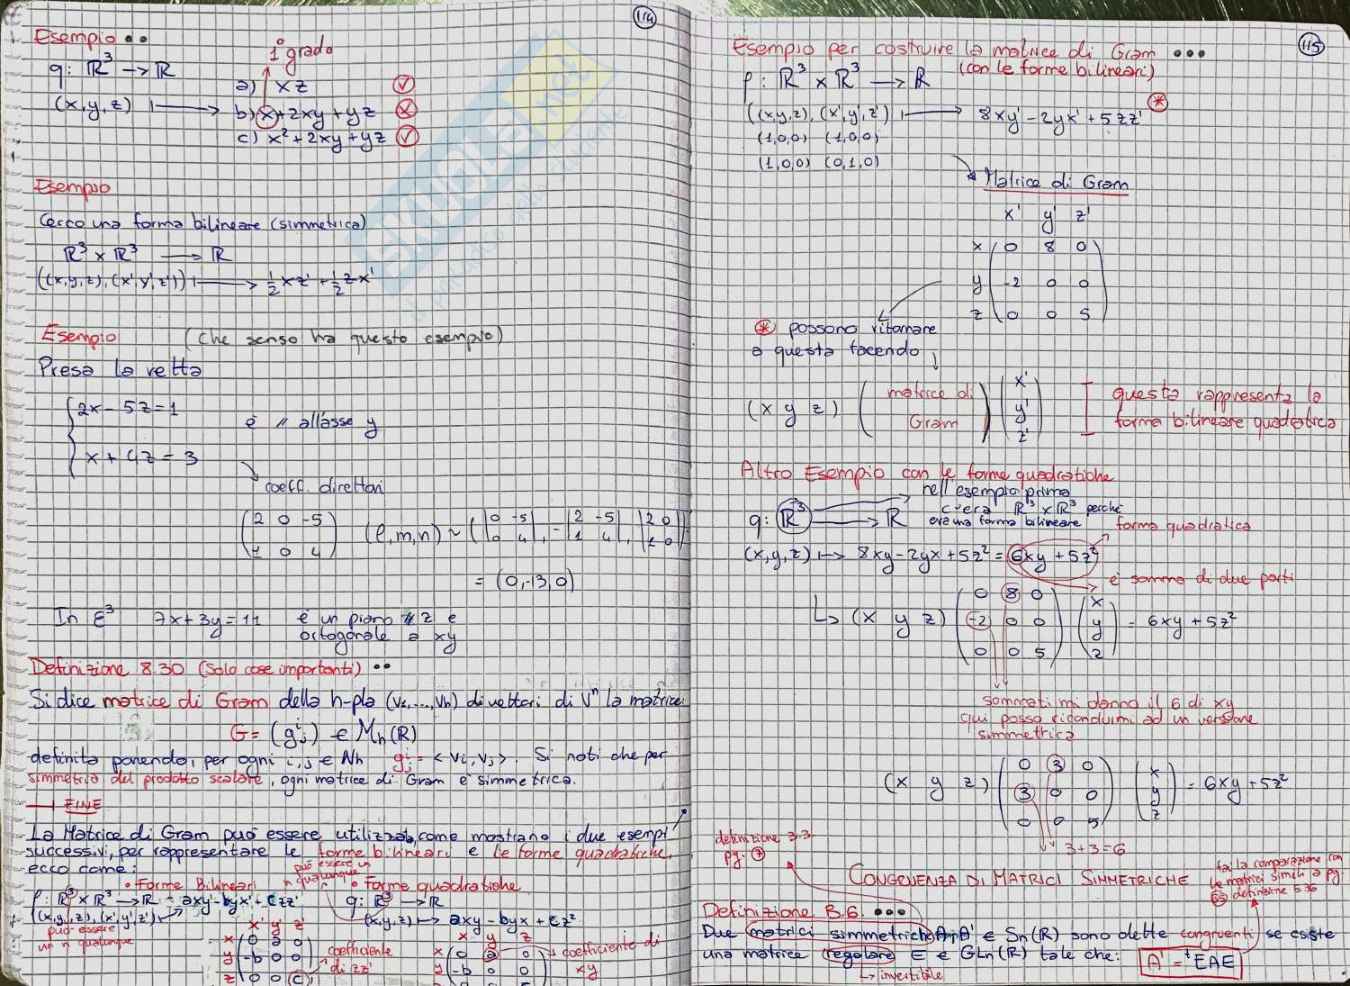 114
Esempio ••
1° grado
q: ℝ³ → ℝ
a) xz
(x,y,z) ↦ b) x+2xy+yz
c) x²+2xy+yz
Esempio
Cerco una forma bilineare (simmetrica)
ℝ³ × ℝ³ → ℝ
((x,y,z), (x',y',z')) ↦ ½xz' + ½zx'
Esempio (che senso ha questo esempio)
Presa la retta
2x - 5z = 1
è // all'asse y
x + 4z = 3
coeff. direttori
(2 0 -5) (l,m,n) ~ (|0 -5|, -|2 -5|, |2 0|)
(1 0 4) |0 4| |1 4| |1 0|
= (0,-13,0)
In E³ 7x+3y=11 è un piano // z e
ortogonale a xy
Definizione 8.30 (Solo cose importanti) ••
Si dice matrice di Gram della h-pla (v₁,...,vₕ) di vettori di Vⁿ la matrice
G = (gⁱⱼ) ∈ Mₕ(R)
definita ponendo, per ogni i,j ∈ Nₕ gⁱⱼ = <vᵢ,vⱼ>. Si noti che per
simmetria del prodotto scalare, ogni matrice di Gram è simmetrica.
FINE
La Matrice di Gram può essere utilizzata, come mostrano i due esempi
successivi, per rappresentare le forme bilineari e le forme quadratiche,
ecco come:
può essere un
n qualunque
• Forme Bilineari • forme quadratiche
f: ℝ³ × ℝ³ → ℝ axy - byx' + czz' q: ℝ³ → ℝ
(x,y,z), (x',y',z') (x,y,z) ↦ axy - byx + cz²
può essere
un n qualunque
x' y' z' x y z
x 0 a 0 coefficiente x 0 a 0 coefficiente di
y -b 0 0 di zz' y -b 0 0 xy
z 0 0 c
115
Esempio per costruire la matrice di Gram •••
(con le forme bilineari)
f: ℝ³ × ℝ³ → ℝ
((x,y,z), (x',y',z')) ↦ 8xy' - 2yx' + 5zz' *
(1,0,0) (1,0,0)
(1,0,0) (0,1,0)
Matrice di Gram
x' y' z'
x 0 8 0
y -2 0 0
z 0 0 5
* possono ritornare
a questa facendo
(x y z) (matrice di Gram) (x' y' z')
questa rappresenta la
forma bilineare quadratica
Altro Esempio con le forme quadratiche
nell'esempio prima
c'era ℝ³ × ℝ³ perché
q: ℝ³ → ℝ era una forma bilineare forma quadratica
(x,y,z) ↦ 8xy - 2yx + 5z² = 6xy + 5z²
è somma di due parti
0 8 0 x
(x y z) -2 0 0 y = 6xy + 5z²
0 0 5 z
sommati mi danno il 6 di xy
qui posso ricondurmi ad un versione
simmetrica
0 3 0 x
(x y z) 3 0 0 y = 6xy + 5z²
0 0 5 z
3+3=6
definizione 3.3
pg.
fai la comparazione con
le matrici simili a pg.
definizione
CONGRUENZA DI MATRICI SIMMETRICHE
Definizione B.6. •••
Due matrici simmetriche A, A' ∈ Sn(R) sono dette congruenti se esiste
una matrice regolare E ∈ GLn(R) tale che: A' = ᵗEAE
↳ invertibile